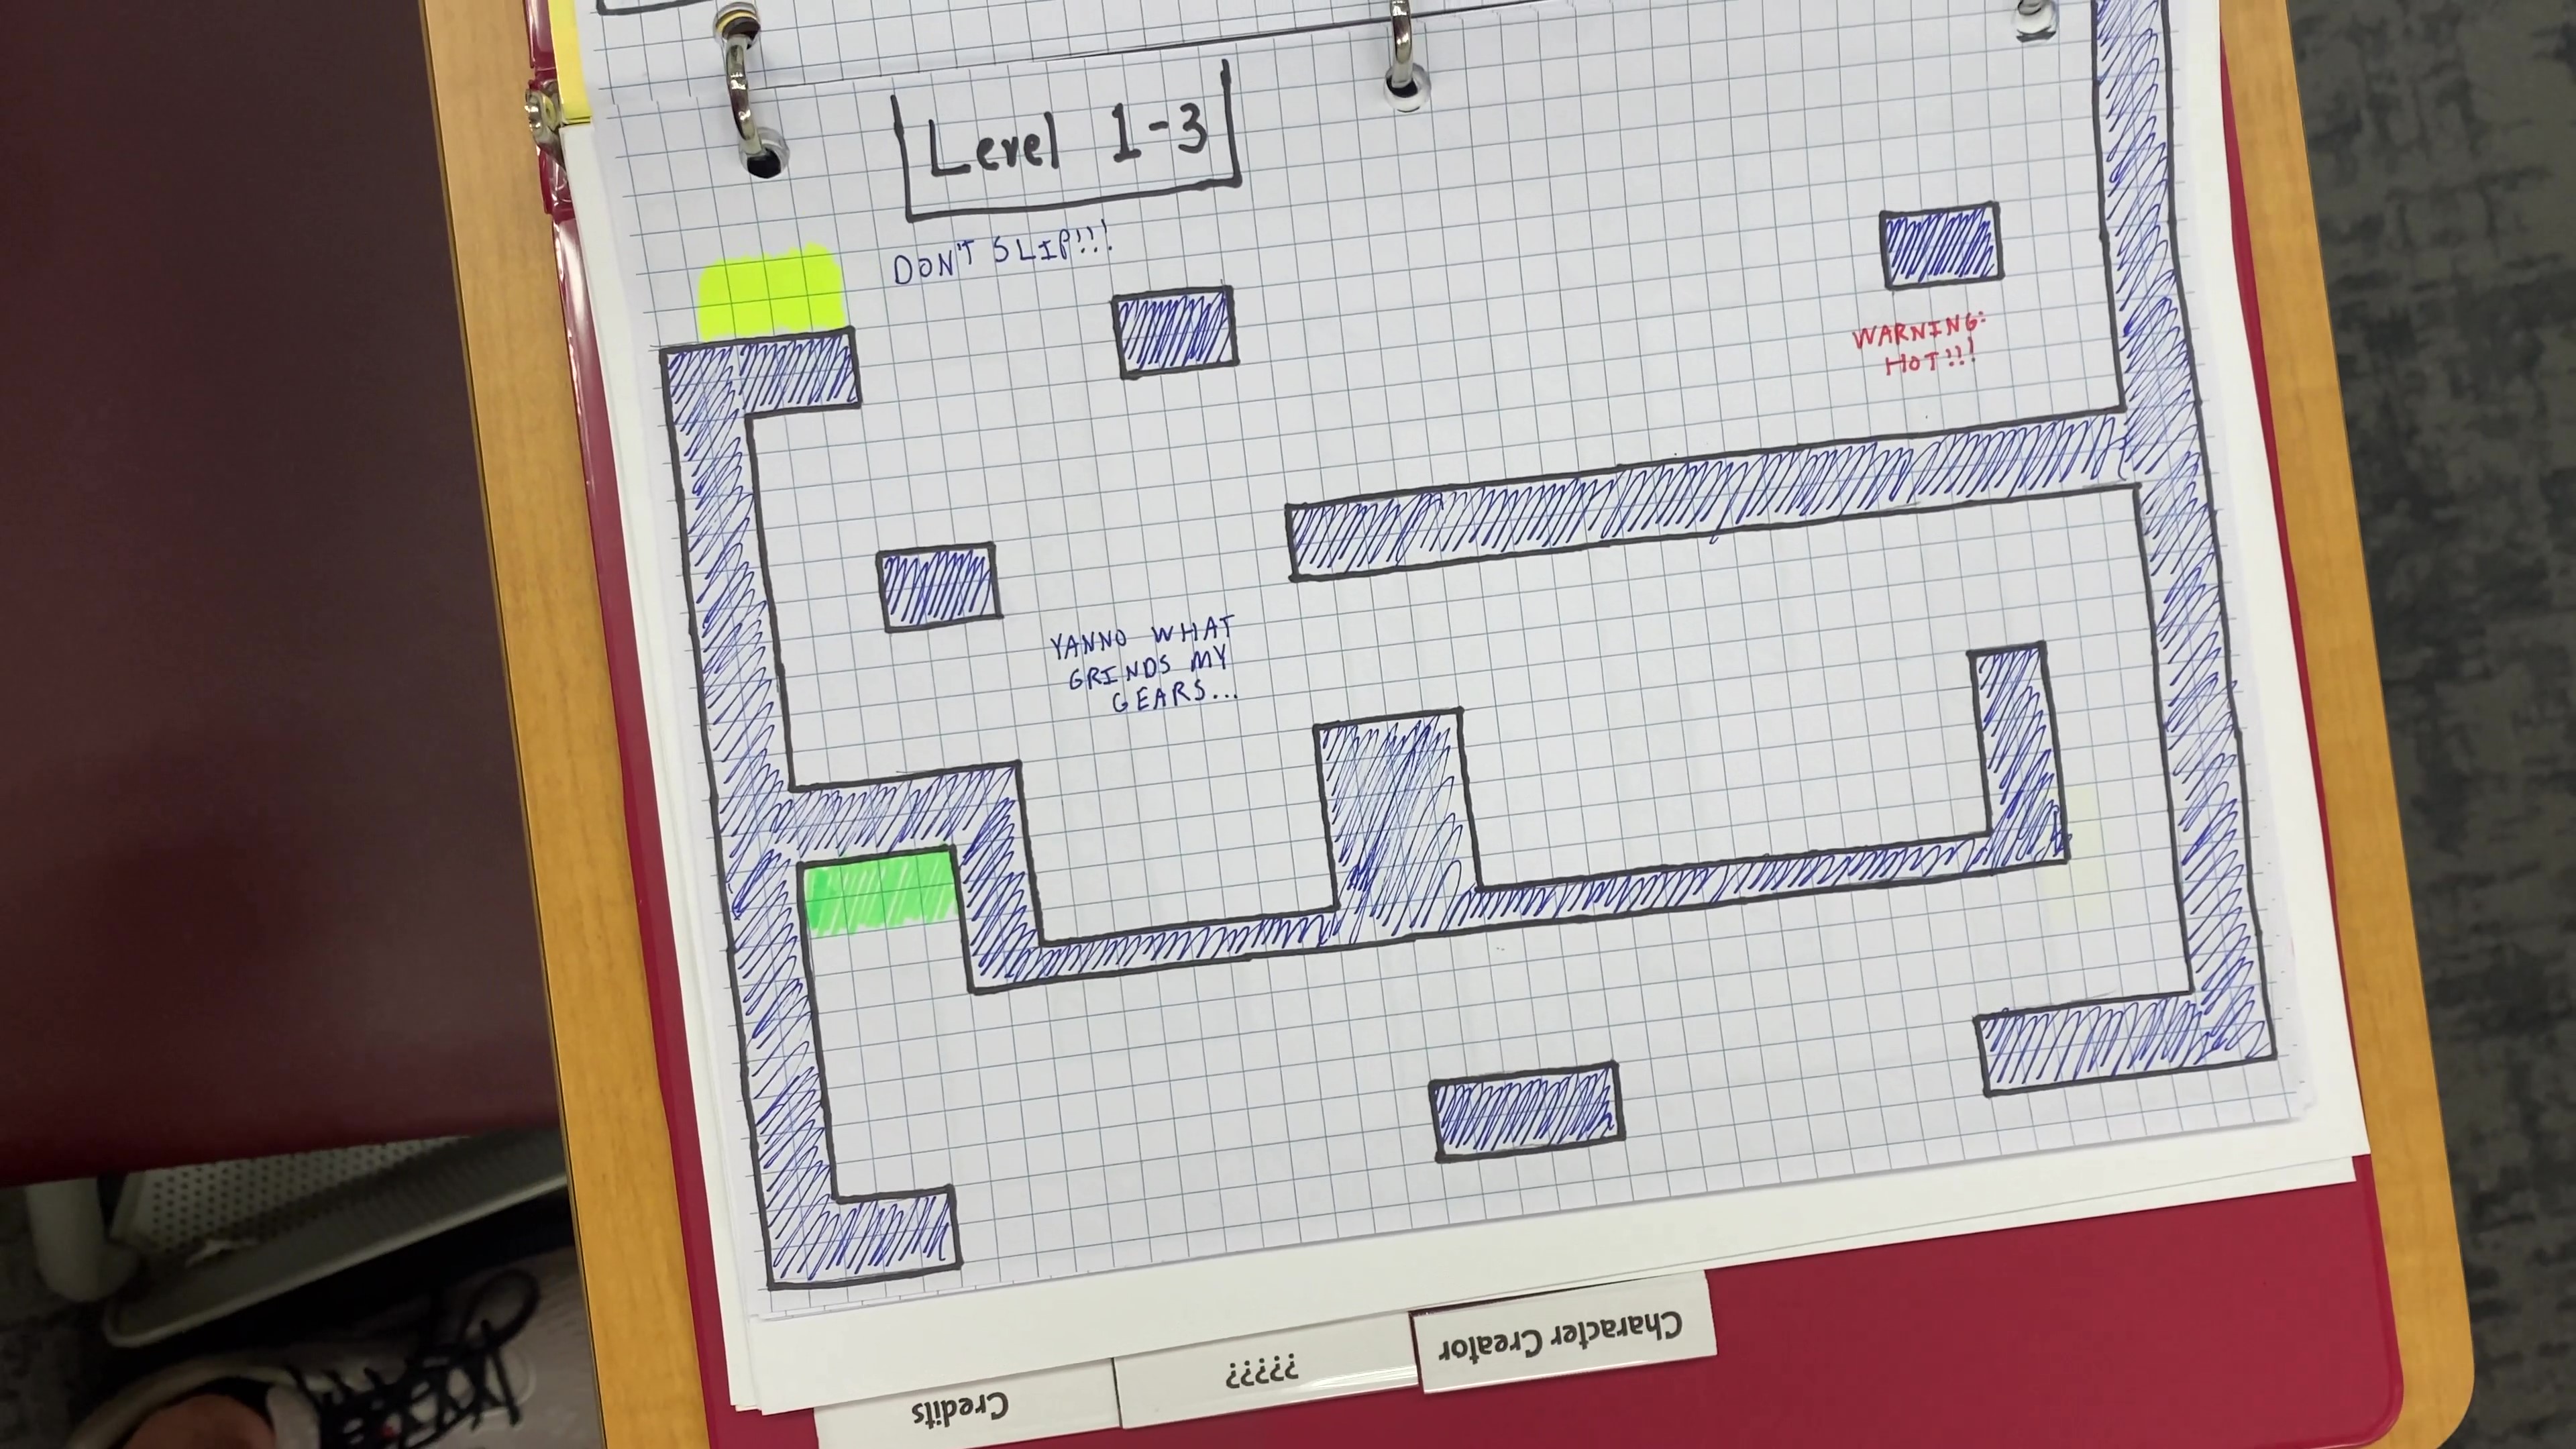 Level 1-3
DON'T SLIP!!!
WARNING:
HOT!!!
YANNO WHAT
GRINDS MY
GEARS...
Character Creator
?????
Credits